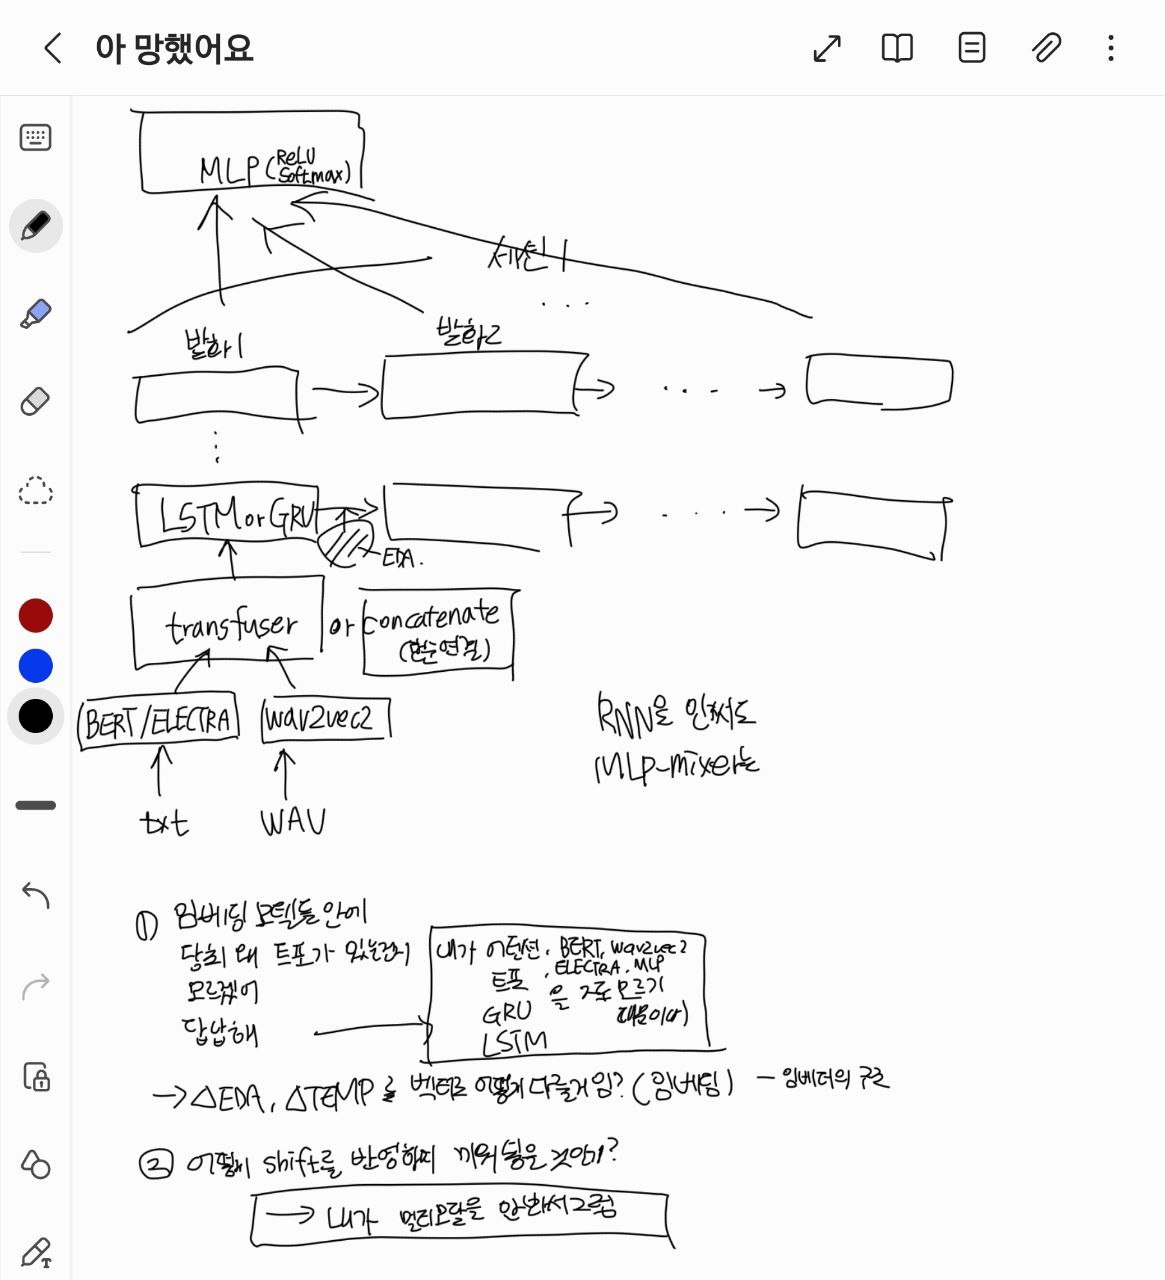 아 망했어요
MLP (ReLU
Softmax)
세션 1
...
발화1
발화2
LSTM or GRU
EDA.
transfuser or concatenate
(단순연결)
BERT/ELECTRA
wav2vec2
txt
WAV
RNN을 안써도
MLP-mixer는
① 임베딩 모델들 안에
당최 왜 트포가 있는건지
모르겠어
답답해
내가 어텐션, BERT, wav2vec2
트포, ELECTRA, MLP
GRU 은 구조 모르기
LSTM 때문이다)
→ △EDA, △TEMP를 벡터로 어떻게 다룰거임? (임베딩) - 임베더의 구조
② 어떻게 shift를 반영하며 끼워 넣을 것인가?
→ 내가 멀티모달을 안봐서그럼